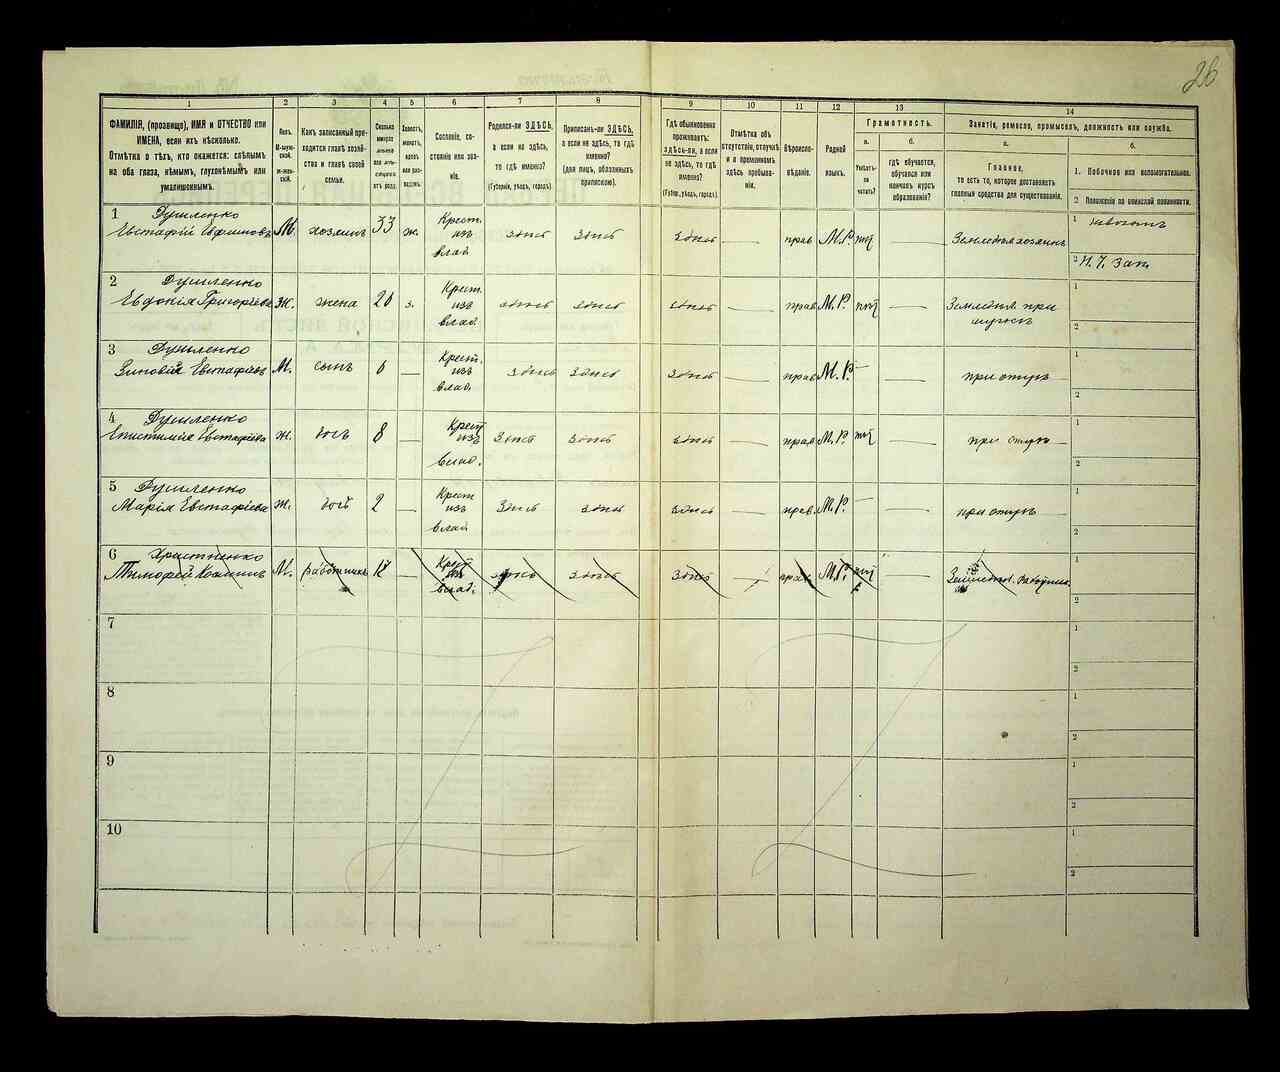 26
1
2
3
4
5
6
7
8
9
10
11
12
13
14
ФАМИЛІЯ, (прозвище), ИМЯ и ОТЧЕСТВО или
ИМЕНА, если ихъ нѣсколько.
Отмѣтка о тѣхъ, кто окажется: слѣпымъ
на оба глаза, нѣмымъ, глухонѣмымъ или
умалишоннымъ.
Полъ.
М-муж-
ской.
Ж-жен-
скій.
Какъ записанный при-
ходится главѣ хозяй-
ства и главѣ своей
семьи.
Сколько
минуло
лѣтъ
или мѣ-
сяцевъ
отъ роду.
Холостъ,
женатъ,
вдовъ
или раз-
веденъ.
Сословіе, со-
стояніе или зва-
ніе.
Родился-ли ЗДѢСЬ,
а если не здѣсь,
то гдѣ именно?
(Губернія, уѣздъ, городъ).
Приписанъ-ли ЗДѢСЬ,
а если не здѣсь, то гдѣ
именно?
(для лицъ, обязанныхъ
припискою).
Гдѣ обыкновенно
проживаетъ:
здѣсь-ли, а если
не здѣсь, то гдѣ
именно?
(Губер., уѣздъ, городъ).
Отмѣтка объ
отсутствіи, отлучкѣ
и о временномъ
здѣсь пребыва-
ніи.
Вѣроиспо-
вѣданіе.
Родной
языкъ.
Грамотность.
а.
Умѣетъ-
ли
читать?
б.
гдѣ обучается,
обучался или
кончилъ курсъ
образованія?
Занятіе, ремесло, промыселъ, должность или служба.
а.
Главное,
то есть то, которое доставляетъ
главныя средства для существованія.
б.
1. Побочное или вспомогательное.
2 Положеніе по воинской повинности.
1 Душленко
Евстафій Евфимовъ М. хозяинъ 33 ж. Крест. изъ влад. здѣсь здѣсь здѣсь — прав. М.Р. — Землед. хозяинъ
1
2
2 Душленко
Евдокія Григоріева ж. жена з. Крест. изъ влад. здѣсь здѣсь здѣсь — прав. М.Р. — Землед. при мужѣ
1
2
3 Душленко
Зиновій Евстафіевъ М. сынъ 6 — Крест. изъ влад. здѣсь здѣсь здѣсь — прав. М.Р. — — при отцѣ
1
2
4 Душленко
Епистимія Евстафіева ж. дочь 8 — Крест. изъ влад. здѣсь здѣсь здѣсь — прав. М.Р. — при отцѣ
1
2
5 Душленко
Марія Евстафіева ж. дочь 2 — Крест. изъ влад. здѣсь здѣсь здѣсь — прав. М.Р. — — при отцѣ
1
2
6 Христиченко
Тимофей М. работникъ — Крест. изъ влад. здѣсь здѣсь здѣсь — прав. М.Р. — Землед.
1
2
7
1
2
8
1
2
9
1
2
10
1
2